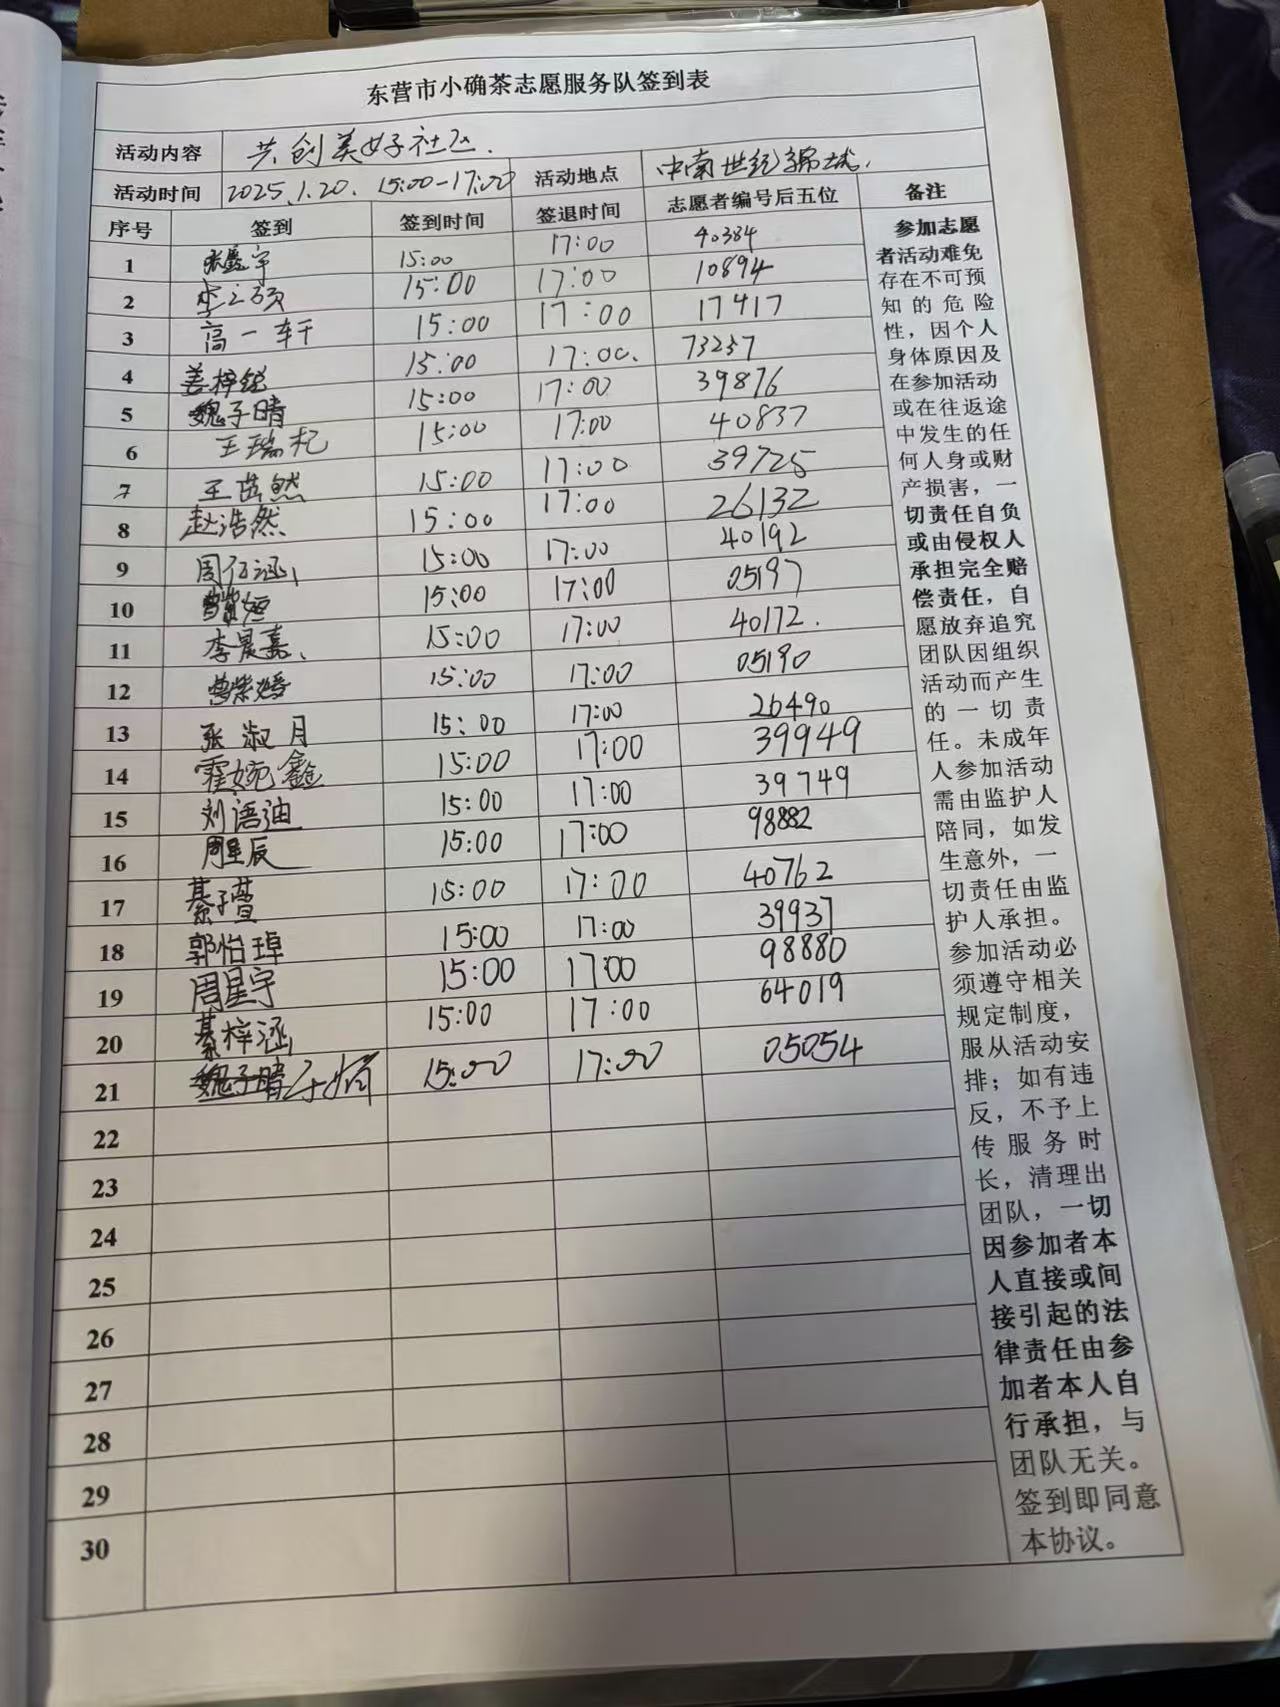 东营市小确茶志愿服务队签到表
活动内容 共创美好社区.
活动时间 2025.1.20. 15:00-17:00 活动地点 中南世纪锦城.
序号 签到 签到时间 签退时间 志愿者编号后五位 备注
1 张鑫宇 15:00 17:00 40384
2 李之硕 15:00 17:00 10894
3 高一轩 15:00 17:00 17417
4 姜梓锐 15:00 17:00. 73237
5 魏子晴 15:00 17:00 39876
6 王瑞杞 15:00 17:00 40837
7 王茁然 15:00 17:00 39725
8 赵浩然 15:00 17:00 26132
9 周佰涵 15:00 17:00 40192
10 15:00 17:00 05197
11 李晨嘉、 15:00 17:00 40172.
12 曾紫婷 15:00 17:00 05190
13 张淑月 15:00 17:00 26490
14 霍婉鑫 15:00 17:00 39949
15 刘语迪 15:00 17:00 39749
16 周星辰 15:00 17:00 98882
17 綦子萱 15:00 17:00 40762
18 郭怡琸 15:00 17:00 39937
19 周星宇 15:00 17:00 98880
20 綦梓涵 15:00 17:00 64019
21 魏子晴 15:00 17:00 05054
22
23
24
25
26
27
28
29
30
参加志愿
者活动难免
存在不可预
知的危险
性，因个人
身体原因及
在参加活动
或在往返途
中发生的任
何人身或财
产损害，一
切责任自负
或由侵权人
承担完全赔
偿责任，自
愿放弃追究
团队因组织
活动而产生
的一切责
任。未成年
人参加活动
需由监护人
陪同，如发
生意外，一
切责任由监
护人承担。
参加活动必
须遵守相关
规定制度，
服从活动安
排；如有违
反，不予上
传服务时
长，清理出
团队，一切
因参加者本
人直接或间
接引起的法
律责任由参
加者本人自
行承担，与
团队无关。
签到即同意
本协议。